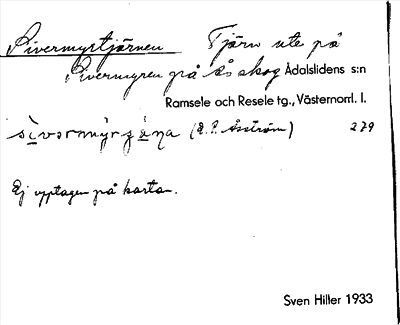 Sivermyrtjärnen Tjärn ute på
Sivermyren på Ås skog Ådalslidens s:n
Ramsele och Resele tg., Västernorrl. l.
(E. P. Åström) 279
Ej upptagen på karta.
Sven Hiller 1933